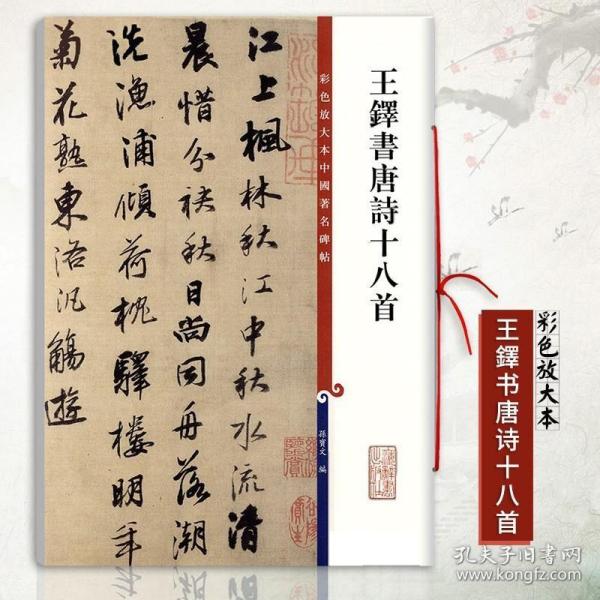 王鐸書唐詩十八首
彩色放大本中國著名碑帖
孫寶文 編
江上楓林秋江中秋水流清
晨惜分袂秋日尚同舟落潮
洗漁浦傾荷枕驛樓明年
菊花熟東洛汎觴遊
彩色放大本
王鐸书唐诗十八首
孔夫子旧书网
www.kongfz.com